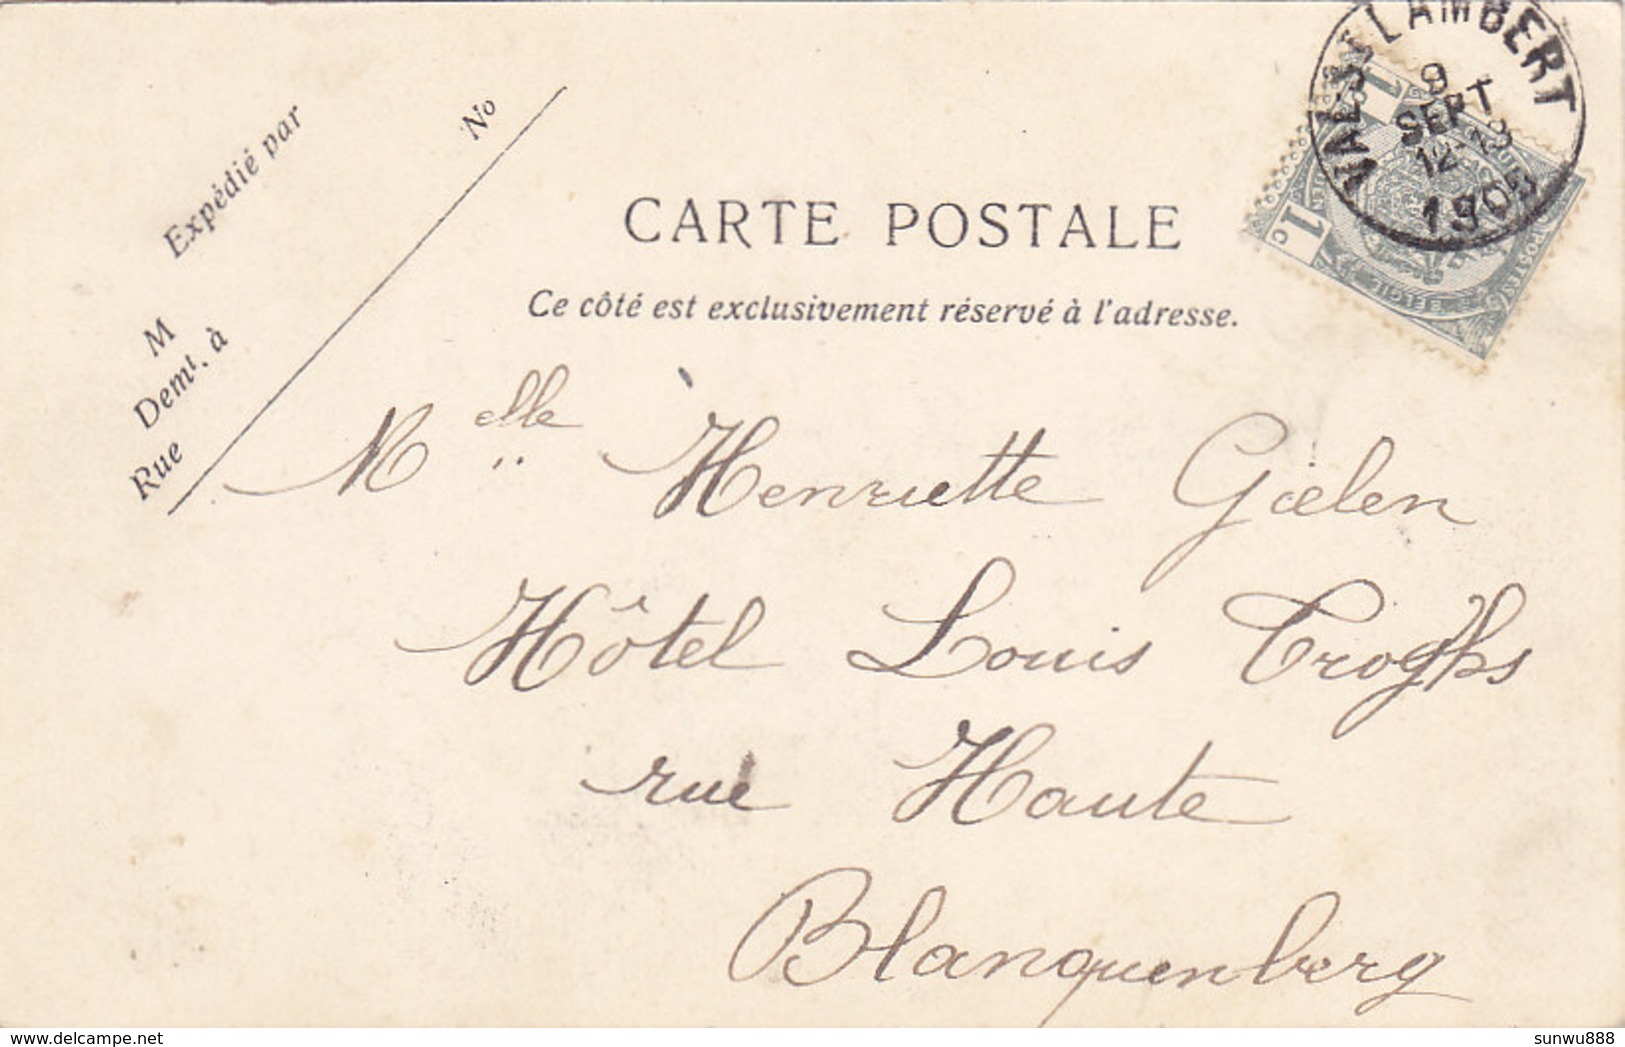 VAL ST LAMBERT
9
SEPT
12-13
1905
1
1 c
POSTES
BELGIE
Expédié par
No
M
Demt. à
Rue
CARTE POSTALE
Ce côté est exclusivement réservé à l'adresse.
Melle Henriette Gœlen
Hôtel Louis
rue Haute
Blanquenberg
delcampe.net
sunwu888